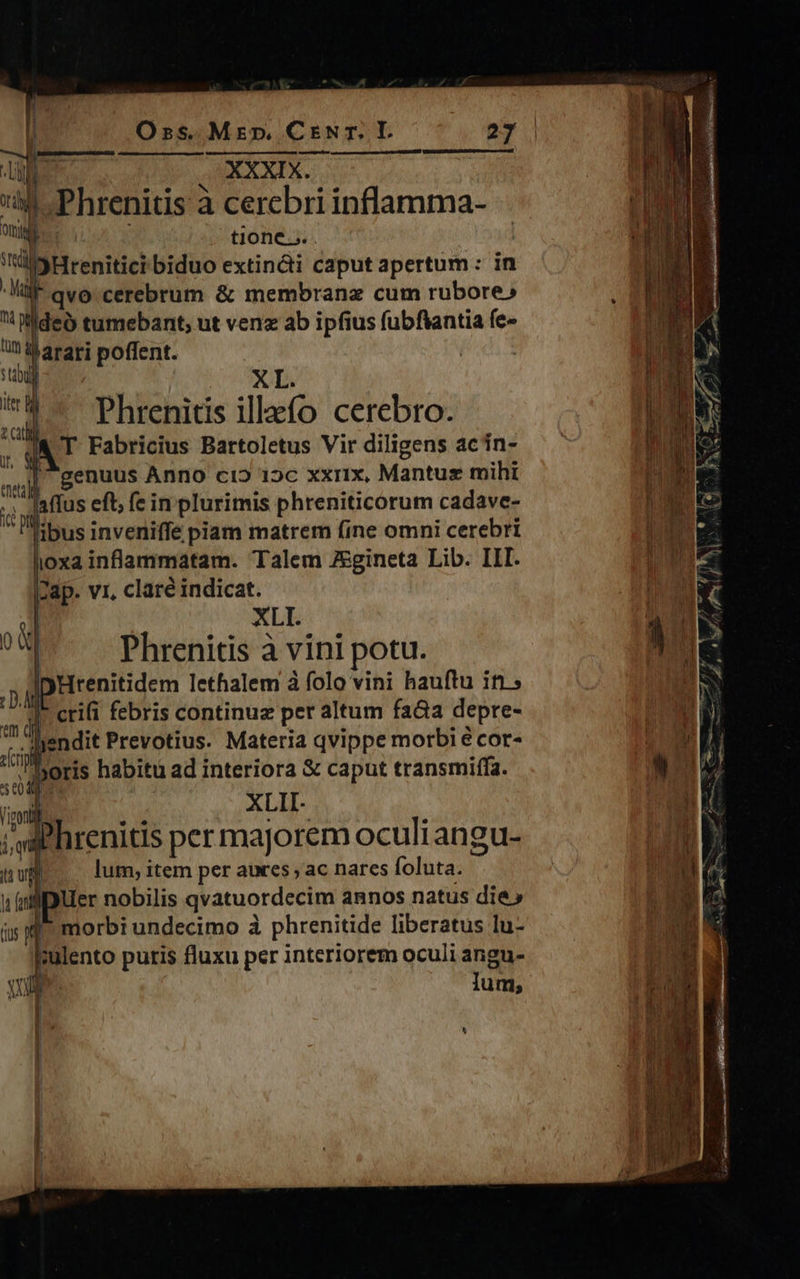 Obs. Med. Cent. I. 27
XXXIX.
Phrenitis à cerebri inflamma-
tione.
PHrenitici biduo extincti caput apertum: in
qvo cerebrum & membranæ cum rubore
adeò tumebant, ut venæ ab ipſius ſubſtantia ſe-
parari poſſent.
XL.
Phrenitis illæſo cerebro.
AT Fabricius Bartoletus Vir diligens ac in-
genuus Anno cIↃ IↃc xxIIx, Mantuæ mihi
faſſus eſt, ſe in plurimis phreniticorum cadave-
ribus inveniſſe piam matrem ſine omni cerebri
noxa inflammatam. Talem Ægineta Lib. III.
Cap. VI, clarè indicat.
XLI.
Phrenitis à vini potu.
PHrenitidem lethalem à ſolo vini hauſtu in
criſi febris continuæ per altum facta depre-
hendit Prevotius. Materia qvippe morbi è cor-
poris habitu ad interiora & caput transmiſſa.
XLII.
Phrenitis per majorem oculi angu-
lum, item per aures, ac nares ſoluta.
PUer nobilis qvatuordecim annos natus die
morbi undecimo à phrenitide liberatus lu-
culento puris fluxu per interiorem oculi angu-
lum,